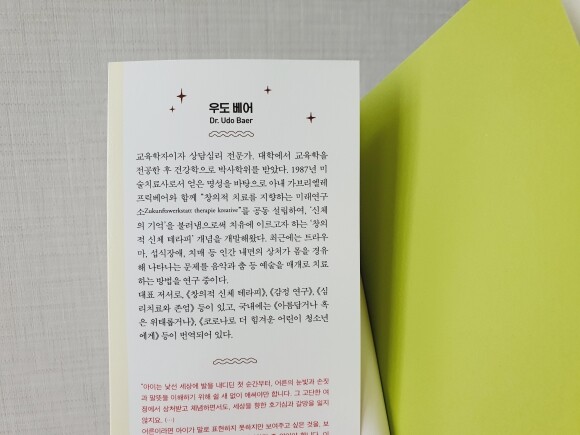 우도 베어
Dr. Udo Baer
교육학자이자 상담심리 전문가. 대학에서 교육학을
전공한 후 건강학으로 박사학위를 받았다. 1987년 미
술치료사로서 얻은 명성을 바탕으로 아내 가브리엘레
프릭베어와 함께 “창의적 치료를 지향하는 미래연구
소Zukunftswerkstatt therapie kreative”를 공동 설립하여, ‘신체
의 기억’을 불러냄으로써 치유에 이르고자 하는 ‘창의
적 신체 테라피’ 개념을 개발해왔다. 최근에는 트라우
마, 섭식장애, 치매 등 인간 내면의 상처가 몸을 경유
해 나타나는 문제를 음악과 춤 등 예술을 매개로 치료
하는 방법을 연구 중이다.
대표 저서로, 《창의적 신체 테라피》, 《감정 연구》, 《심
리치료와 존엄》 등이 있고, 국내에는 《아름답거나 혹
은 위태롭거나》, 《코로나로 더 힘겨운 어린이 청소년
에게》 등이 번역되어 있다.
“아이는 낯선 세상에 발을 내디딘 첫 순간부터, 어른의 눈빛과 손짓
과 말뜻을 이해하기 위해 쉴 새 없이 애써야만 합니다. 그 고단한 여
정에서 상처받고 체념하면서도, 세상을 향한 호기심과 갈망을 잃지
않지요. (…)
어른이라면 아이가 말로 표현하지 못하지만 보여주고 싶은 것을, 보